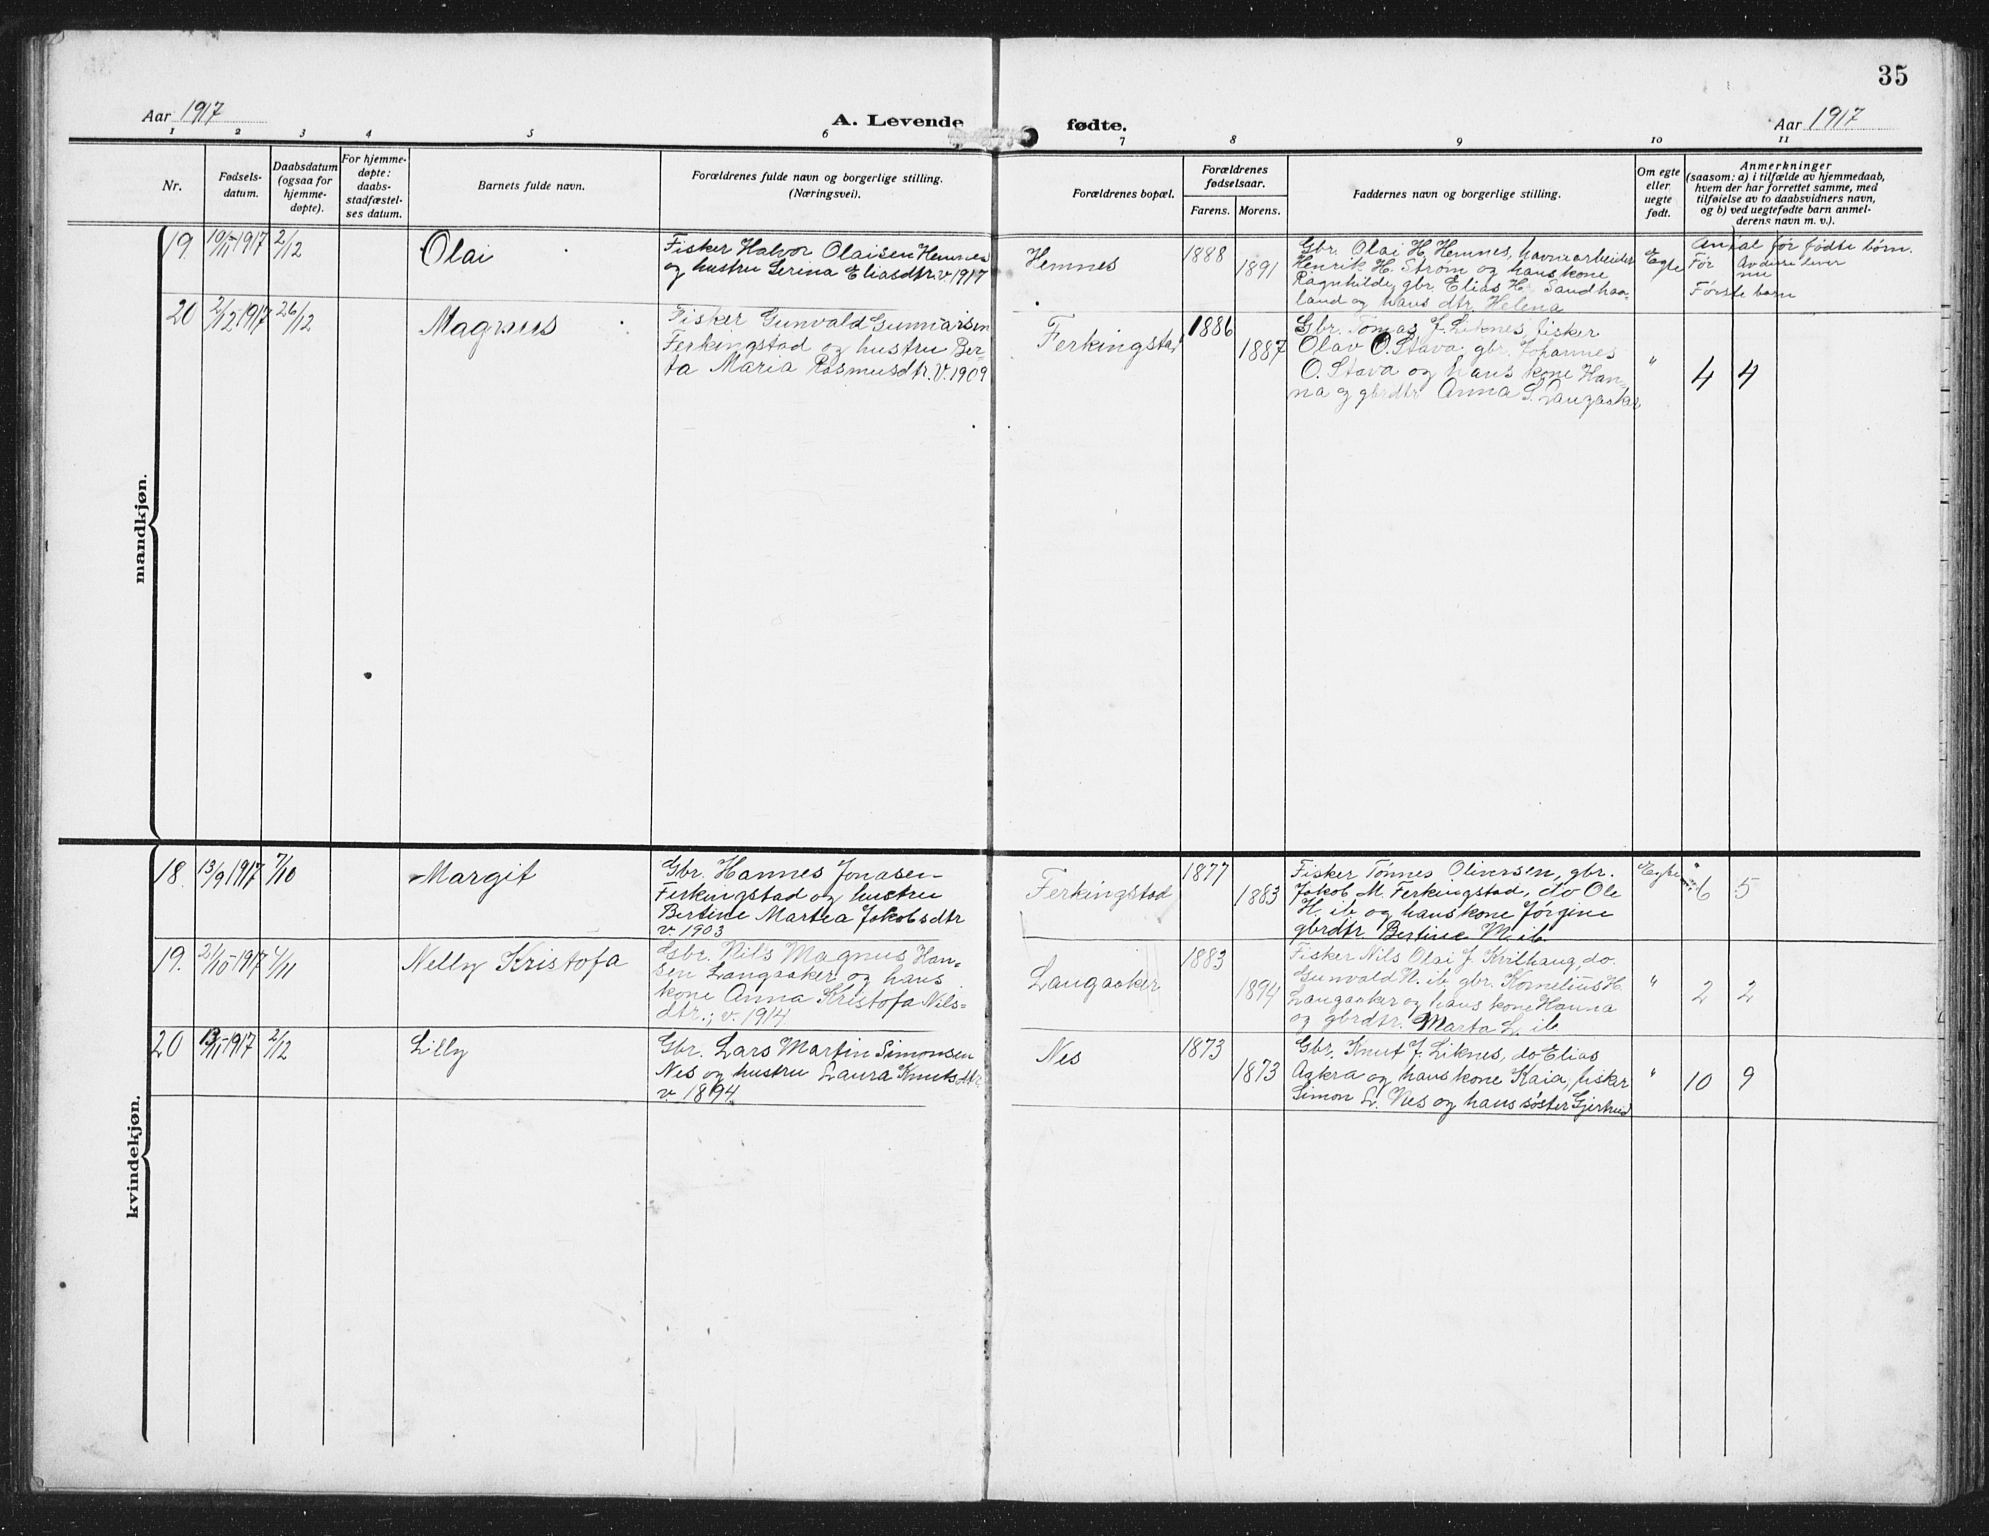 35
Aar 1917
A. Levende
fødte.
Aar 1917
1 2 3 4 5 6 7 8 9 10 11
Nr.
Fødsels-
datum.
Daabsdatum
(ogsaa for
hjemme-
døpte).
For hjemme-
døpte:
daabs-
stadfæstel-
ses datum.
Barnets fulde navn.
Forældrenes fulde navn og borgerlige stilling.
(Næringsvei).
Forældrenes bopæl.
Forældrenes
fødselsaar.
Farens. Morens.
Faddernes navn og borgerlige stilling.
Om egte
eller
uegte
født.
Anmerkninger
(saasom: a) i tilfælde av hjemmedaab,
hvem der har forrettet samme, med
tilføielse av to daabsvidners navn,
og b) ved uegtefødte barn anmel-
derens navn m. v.).
mandkjøn.
19. 10/11 1917 2/12
Olai
Fisker Halvor Olaisen Hemnes
og hustru Serina Eliasdtr. v. 1917
Hemnes
1888
1891
Gbr. Olai H. Hemnes, havnearbeider
Henrik H. Strøm og hans kone
Ragnhilde, gbr. Elias H. Sandhaa-
land og hans dtr. Helena
Egte
Antal før fødte børn.
Før
Av disse lever
nu
Første barn
20 2/12 1917 26/12
Magnus
Fisker Gunvald Gunnarsen
Ferkingstad og hustru Ber-
ta Maria Rasmusdtr. v. 1909
Ferkingstad
1886
1887
Gbr. Tomas J. Liknes, fisker
Olav O. Stava, gbr. Johannes
O. Stava og hans kone Han-
na og gbrdtr. Anna S. Langaaker
"
4 4
kvindekjøn.
18. 13/9 1917 7/10
Margit
Gbr. Hannes Jonasen
Ferkingstad og hustru
Bertine Martea Jakobsdtr
v. 1903
Ferkingstad
1877
1883
Fisker Tønnes Oliversen, gbr.
Jakob M. Ferkingstad, do Ole
H. ib og hans kone Jørgine
gbrdtr. Bertine M. ib
Egte
6 5
19. 2/10 1917 4/11
Nelly Kristofa
Gbr. Nils Magnus Han-
sen Langaaker og hans
kone Anna Kristofa Nils-
dtr.; v. 1914
Langaaker
1883
1894
Fisker Nils Olai J. Kvilhaug, do.
Gunvald N. ib, gbr. Kornelius H.
Langaaker og hans kone Hanna
og gbrdtr. Marta L. ib
"
2 2
20 13/11 1917 2/12
Lilly
Gbr. Lars Martin Simonsen
Nes og hustru Laura Knutsdtr.
v. 1894
Nes
1873
1873
Gbr. Knut J. Liknes, do Elias
Aakra og hans kone Kaia, fisker
Simon L. Nes og hans søster Gjertrud
"
10 9